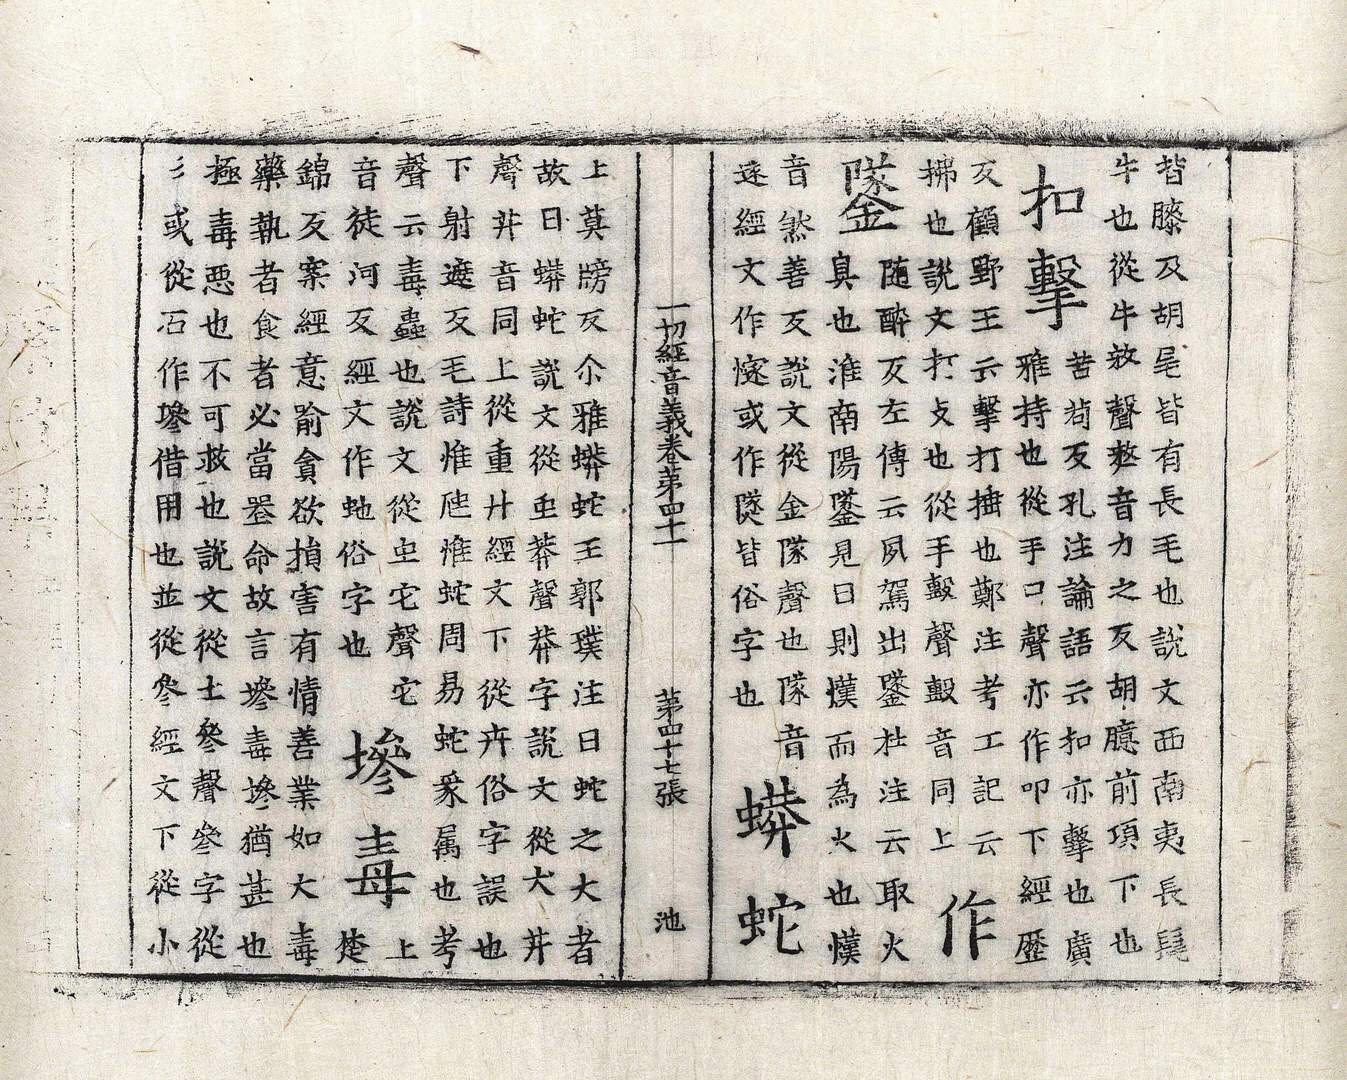 背膝及胡尾皆有長毛也說文西南夷長髦
牛也從牛𠩺聲𠩺音力之反胡臆前項下也
扣擊
苦苟反孔注論語云扣亦擊也廣
雅持也從手口聲亦作叩下經歷
反顧野王云擊打捶也鄭注考工記云
拂也說文打攴也從手毄聲毄音同上
作
鐆
隨醉反左傳云夙駕出鐆杜注云取火
具也淮南陽鐆見日則熯而為火也熯
音然善反說文從金隊聲也隊音
遂經文作燧或作墜皆俗字也
蟒蛇
一切經音義卷第四十一 第四十七張 池
上莫牓反尒雅蟒蛇王郭璞注曰蛇之大者
故曰蟒蛇說文從虫莽聲莽字說文從犬茻
聲茻音同上從重廾經文下從卉俗字誤也
下射遮反毛詩惟虺惟蛇周易蛇豸属也考
聲云毒蟲也說文從虫它聲它
音徒河反經文作虵俗字也
墋毒
上
楚
錦反案經意喻貪欲損害有情善業如大毒
藥執者食者必當喪命故言墋毒墋猶甚也
極毒惡也不可救也說文從土參聲參字從
彡或從石作磣借用也並從參經文下從小